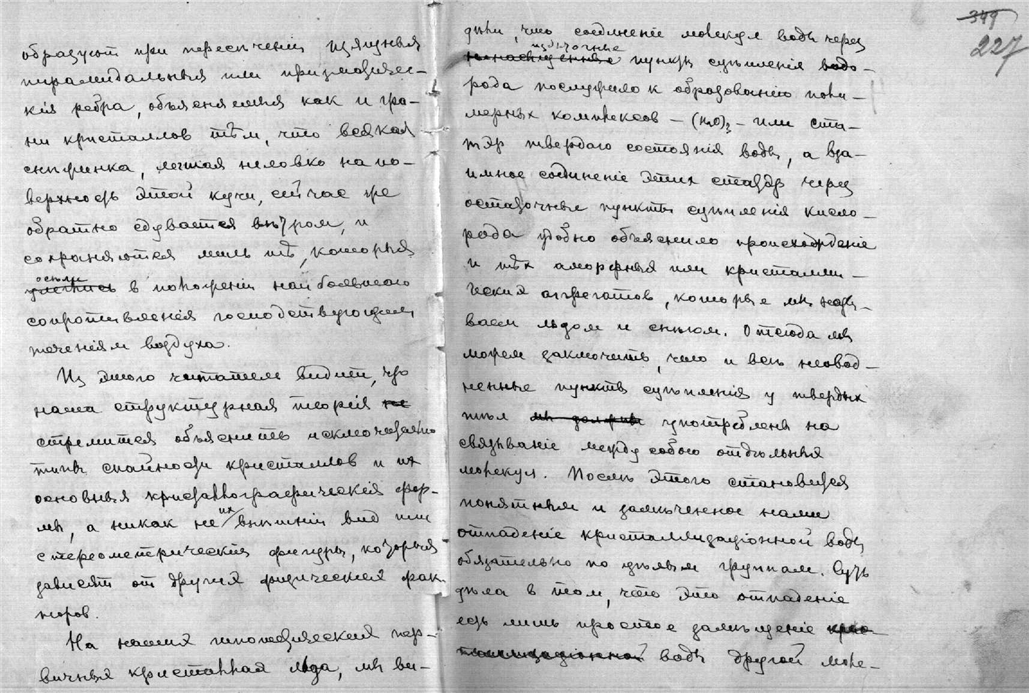 образуют при пересѣченіи изящныя
пирамидальныя или призматичес-
кія ребра, объясняемыя как и гра-
ни кристаллов тѣм, что всякая
снѣжинка, легшая неловко на по-
верхность этой кучи, сейчас же
обратно сдувается вѣтром, и
сохраняются лишь тѣ, которыя
осѣли
в положеніи наибольшаго
сопротивленія господствующим
теченіям воздуха.
Из этого читатели видят, что
наша структурная теорія не
стремится объяснить исключительно
типы спайности кристаллов и их
основныя кристаллографическія фор-
мы, а никак не их внѣшній вид или
стереометрическія фигуры, которыя
зависят от других физических фак-
торов.
На наших гипотетических пер-
вичных кристаллах льда, мы ви-
349
227
дѣли, что соединеніе молекул воды через
избыточные
ненасыщенные пункты сцѣпленія водо-
рода послужило к образованію поли-
мерных комплексов – (H₂O)₃ – или ста-
тэр твердаго состоянія воды, а вза-
имное соединеніе этих статэр через
остаточные пункты сцѣпленія кисло-
рода удобно объяснило происхожденіе
и тѣх аморфных или кристалли-
ческих аггрегатов, которые мы назы-
ваем льдом и снѣгом. Отсюда мы
можем заключить, что и всѣ несвобод-
ненные пункты сцѣпленія у твердых
тѣл мы должны употреблены на
связываніе между собою отдѣльных
молекул. Послѣ этого становится
понятным и замѣченное нами
отпаденіе кристаллизаціонной воды
обязательно по цѣлым группам. Суть
дѣла в том, что это отпаденіе
есть лишь простое замѣщеніе крис-
таллизаціонной воды другой моле-